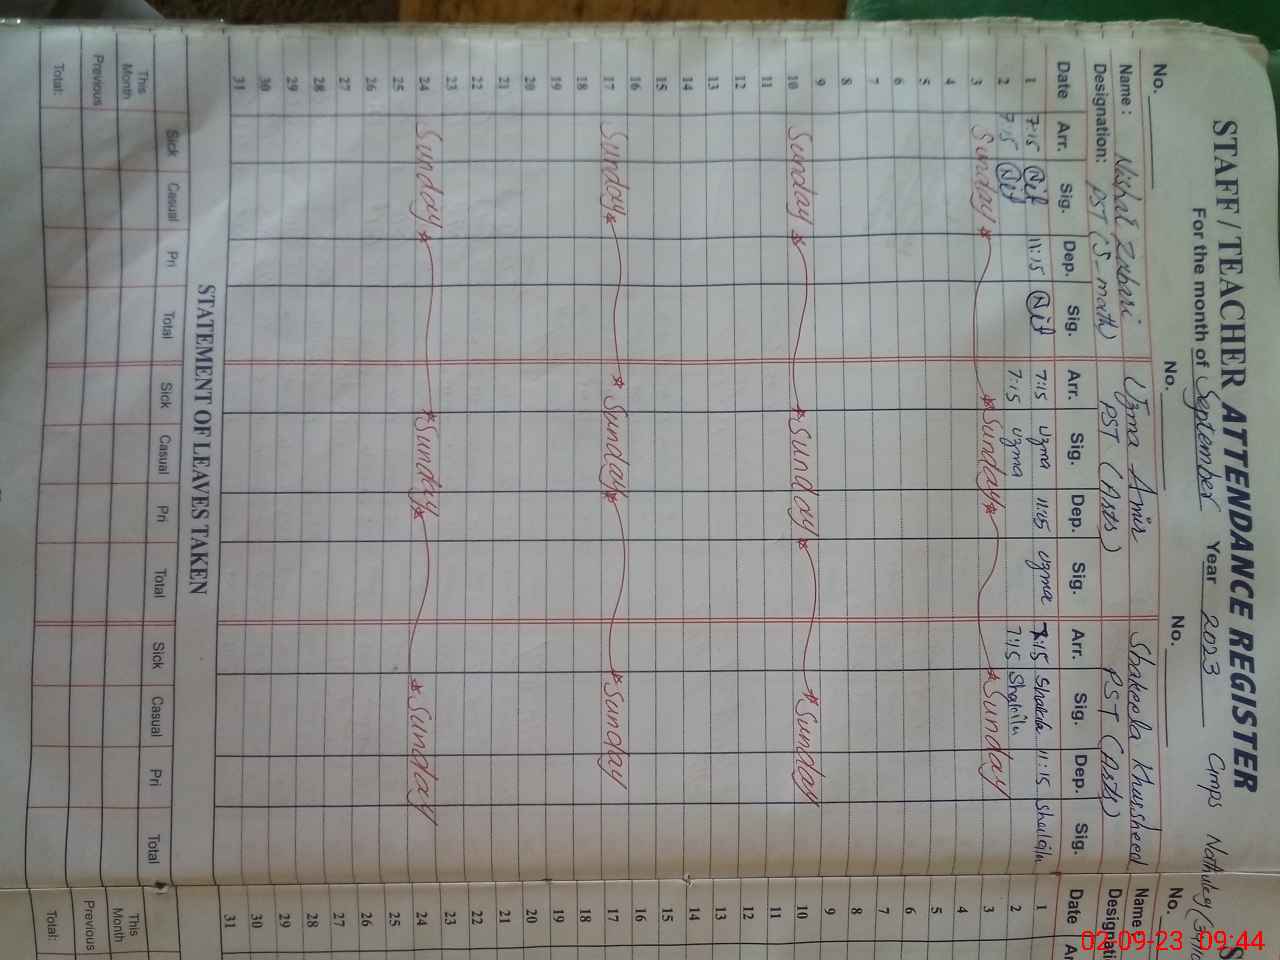 STAFF / TEACHER ATTENDANCE REGISTER
For the month of September Year 2023 Gmps
No. No. No.
Name: Uzma Amir Shakeela Khursheed
Designation: PST (S-math) PST (Arts) PST (Arts)
Date Arr. Sig. Dep. Sig. Arr. Sig. Dep. Sig. Arr. Sig. Dep. Sig.
1 7:15 11:15 7:15 Uzma 11:15 Uzma 7:15 Shakila 11:15
2 7:15 7:15 Uzma 7:15
3 Sunday Sunday Sunday
4
5
6
7
8
9
10 Sunday Sunday Sunday
11
12
13
14
15
16
17 Sunday Sunday Sunday
18
19
20
21
22
23
24 Sunday Sunday Sunday
25
26
27
28
29
30
31
STATEMENT OF LEAVES TAKEN
Sick Casual Pri Total Sick Casual Pri Total Sick Casual Pri Total
This Month
Previous
Total:
No.
Name:
Date
1
2
3
4
5
6
7
8
9
10
11
12
13
14
15
16
17
18
19
20
21
22
23
24
25
26
27
28
29
30
31
This Month
Previous
Total:
02-09-23 09:44